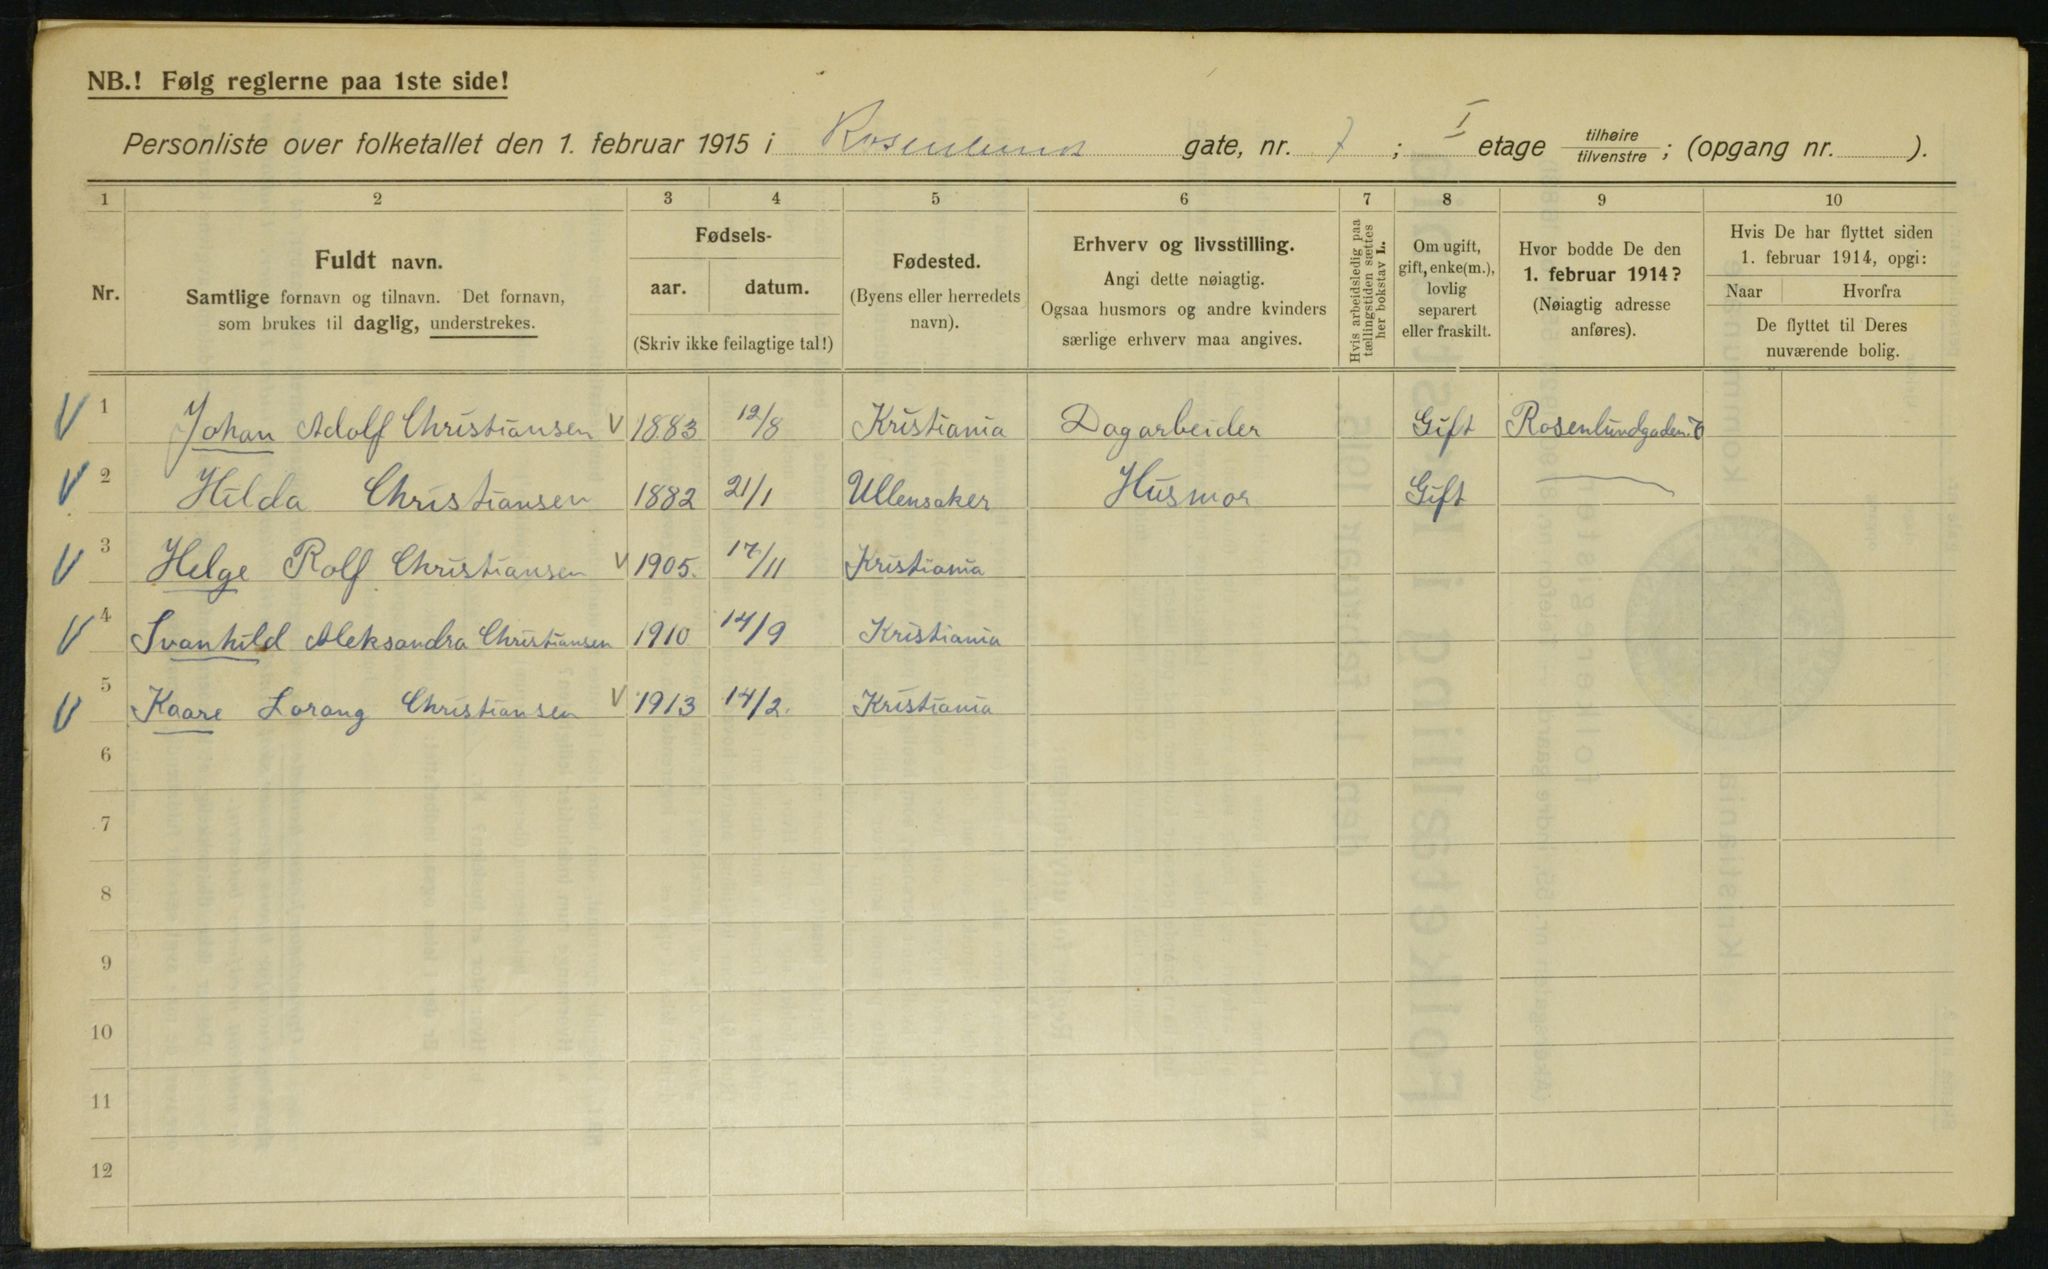 NB.! Følg reglerne paa 1ste side!
Personliste over folketallet den 1. februar 1915 i Rosenlund gate, nr. 7; I etage tilhøire/tilvenstre; (opgang nr. ).
1 2 3 4 5 6 7 8 9 10
Nr.
Fuldt navn.
Samtlige fornavn og tilnavn. Det fornavn,
som brukes til daglig, understrekes.
Fødsels-
aar. datum.
(Skriv ikke feilagtige tal!)
Fødested.
(Byens eller herredets
navn).
Erhverv og livsstilling.
Angi dette nøiagtig.
Ogsaa husmors og andre kvinders
særlige erhverv maa angives.
Hvis arbeidsledig paa
tællingstiden sættes
her bokstav L.
Om ugift,
gift, enke(m.),
lovlig
separert
eller fraskilt.
Hvor bodde De den
1. februar 1914?
(Nøiagtig adresse
anføres).
Hvis De har flyttet siden
1. februar 1914, opgi:
Naar Hvorfra
De flyttet til Deres
nuværende bolig.
V 1 Johan Adolf Christiansen V 1883 12/8 Kristiania Dagarbeider Gift Rosenlundgaden
V 2 Hilda Christiansen 1882 21/1 Ullensaker Husmor Gift
V 3 Helge Rolf Christiansen V 1905. 17/11 Kristiania
V 4 Svanhild Aleksandra Christiansen 1910 14/9 Kristiania
V 5 Kaare Lorang Christiansen V 1913 14/2. Kristiania
6
7
8
9
10
11
12